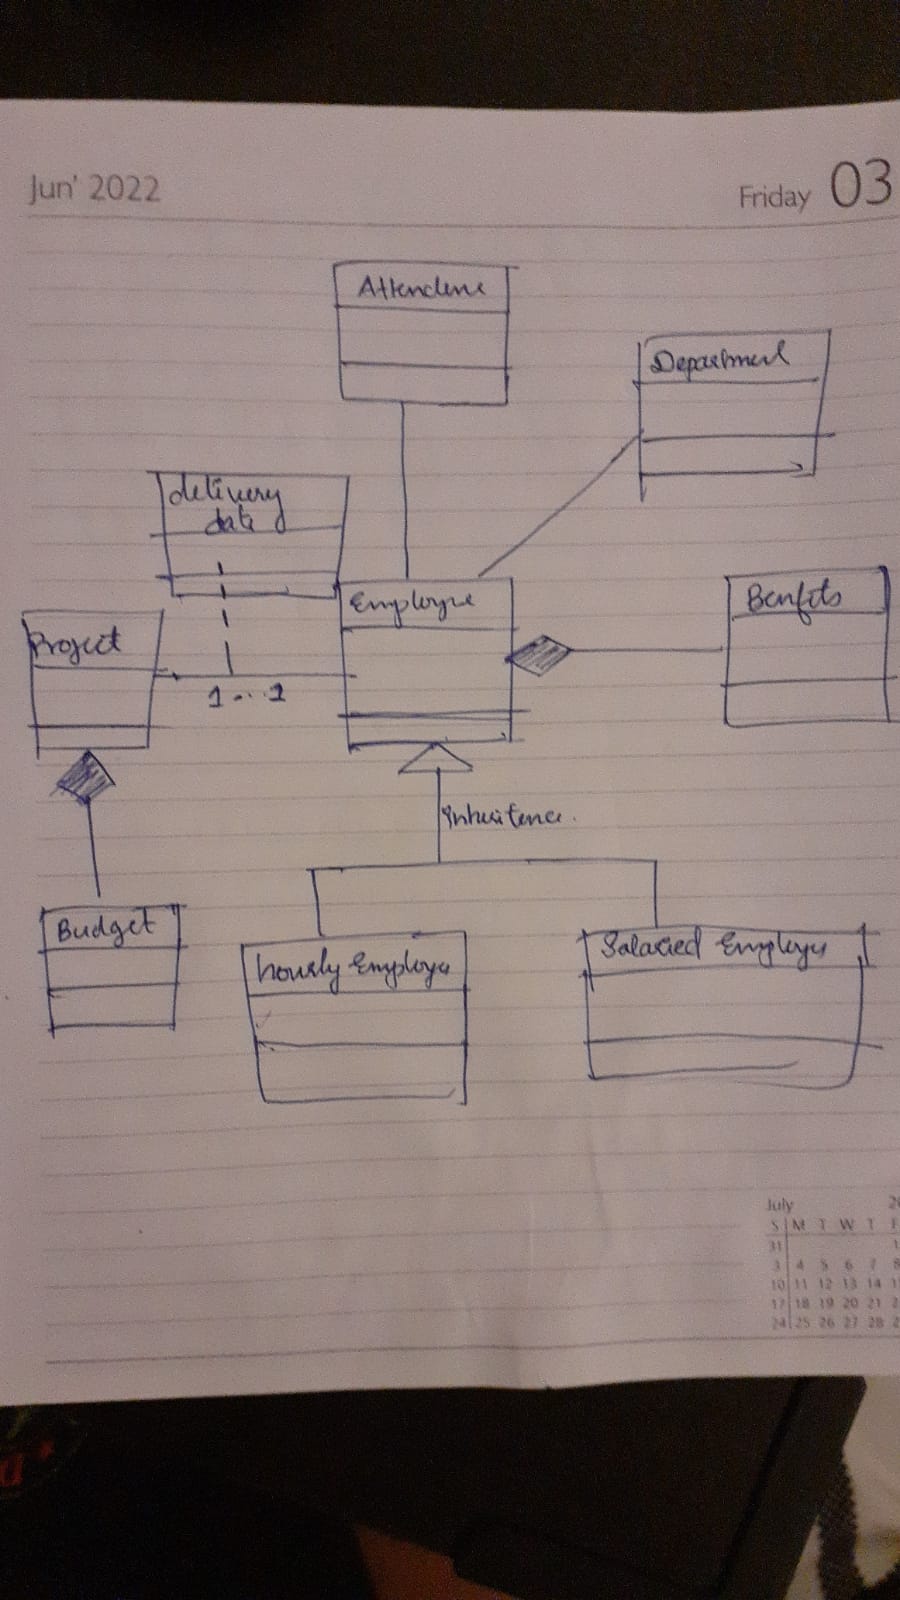 Jun' 2022
Friday 03
Attendene
Department
delivery
date
Employee
Benfits
Project
1 -- 1
Inheritence.
Budget
hously Employe
Salaried Employe
July
S M T W T F
31
3 4 5 6 7 8
10 11 12 13 14
17 18 19 20 21
24 25 26 27 28